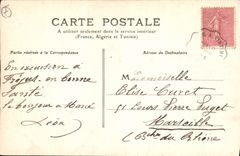 CARTE POSTALE
A utiliser seulement dans le service intérieur
(France, Algérie et Tunisie)
Partie réservée à la Correspondance
Adresse du Destinataire
En excursion à
Fréjus en bonne
Santé
le bonjour à Mané
Léon
Mademoiselle
Elise Curet
51 Cours Pierre Puget
Marseille
(Bches du Rhône